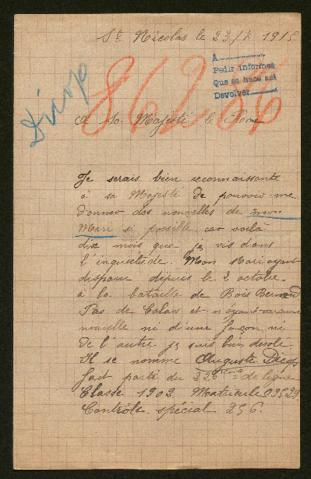 St Nicolas le 23/8 1915
A
Pedir informes
Que se hace así
Devolver
86256
A Sa Majesté le
Je serais bien reconnaissante
à sa Majesté de pouvoir me
donner des nouvelles de mon
Mari si possible car voilà
dix mois que je vis dans
l'inquiétude. Mon Mari ayant
disparu depuis le 2 octobre
à la bataille de Bois Bernard
Pas de Calais et n'ayant aucune
nouvelle ni d'une façon ni
de l'autre je suis bien désolé
Il se nomme Auguste
fait partie du de ligne
Classe 1903. Matricule
Contrôle spécial 256.